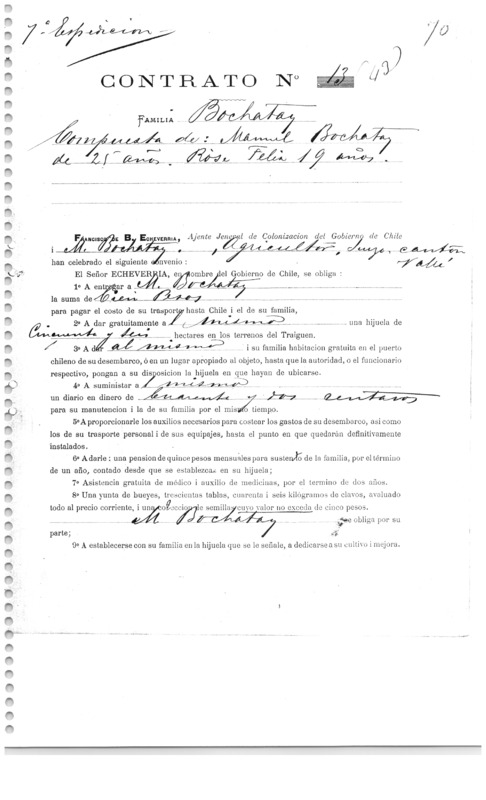 7ª Espedicion
70
CONTRATO Nº 13 (43)
FAMILIA Bochatay
Compuesta de: Manuel Bochatay
de 25 años. Rose Felia 19 años.
FRANCISCO DE B. ECHEVERRIA, Ajente Jeneral de Colonizacion del Gobierno de Chile
i M. Bochatay, Agricultor, Suizo, canton
Valié
han celebrado el siguiente convenio:
El Señor ECHEVERRIA, en nombre del Gobierno de Chile, se obliga:
1º A entregar a M. Bochatay
la suma de Cien Pesos
para pagar el costo de su trasporte hasta Chile i el de su familia,
2º A dar gratuitamente al mismo una hijuela de
Cincuenta y seis hectares en los terrenos del Traiguen.
3º A dar al mismo i su familia habitacion gratuita en el puerto
chileno de su desembarco, ó en un lugar apropiado al objeto, hasta que la autoridad, o el funcionario
respectivo, pongan a su disposicion la hijuela en que hayan de ubicarse.
4º A suministar al mismo
un diario en dinero de Cuarenta y dos centavos
para su manutencion i la de su familia por el mismo tiempo.
5º A proporcionarle los auxilios necesarios para costear los gastos de su desembarco, así como
los de su trasporte personal i de sus equipajes, hasta el punto en que quedarán definitivamente
instalados.
6º A darle: una pension de quince pesos mensuales para sustento de la familia, por el término
de un año, contado desde que se establezca en su hijuela;
7º Asistencia gratuita de médico i auxilio de medicinas, por el termino de dos años.
8º Una yunta de bueyes, trescientas tablas, cuarenta i seis kilógramos de clavos, avaluado
todo al precio corriente, i una coleccion de semillas cuyo valor no exceda de cinco pesos.
M Bochatay se obliga por su
parte;
9º A establecerse con su familia en la hijuela que se le señale, a dedicarse a su cultivo i mejora.